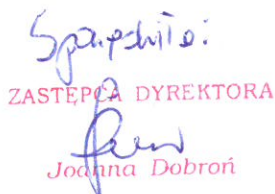 Sporządziła:
ZASTĘPCA DYREKTORA
Joanna Dobroń